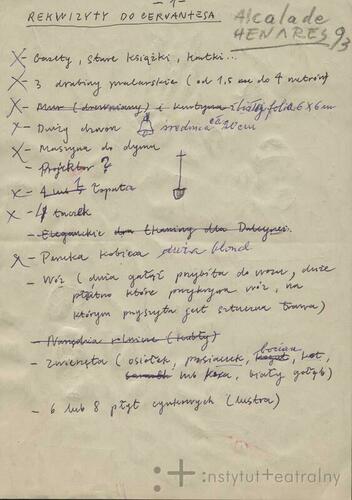 - 1 -
REKWIZYTY DO CERVANTESA
Alcala de
HENARES 93
X- Gazety, stare książki, kartki...
X- 3 drabiny malarskie (od 1,5 m do 4 metrów)
X- Mur (drewniany) i kurtyna z białej folii 6x6m
X- Duży dzwon średnica ca 20cm
X- Maszyna do dymu
- Projektor ?
X- 4 lub 1 łopata
X- 4 taczek
- Eleganckie dla Dulcynei
X- Peruka kobieca duża blond
- Wóz (duża gałąź przybita do wozu, duże
płótno które przykrywa wóz, na
którym przyszyta jest sztuczna trawa)
- Narzędzia rolnicze
- Zwierzęta (osiołek, prosiaczek, bocian, kot,
lub koza, biały gołąb)
- 6 lub 8 płyt cynkowych (lustra)
:+: instytut+teatralny